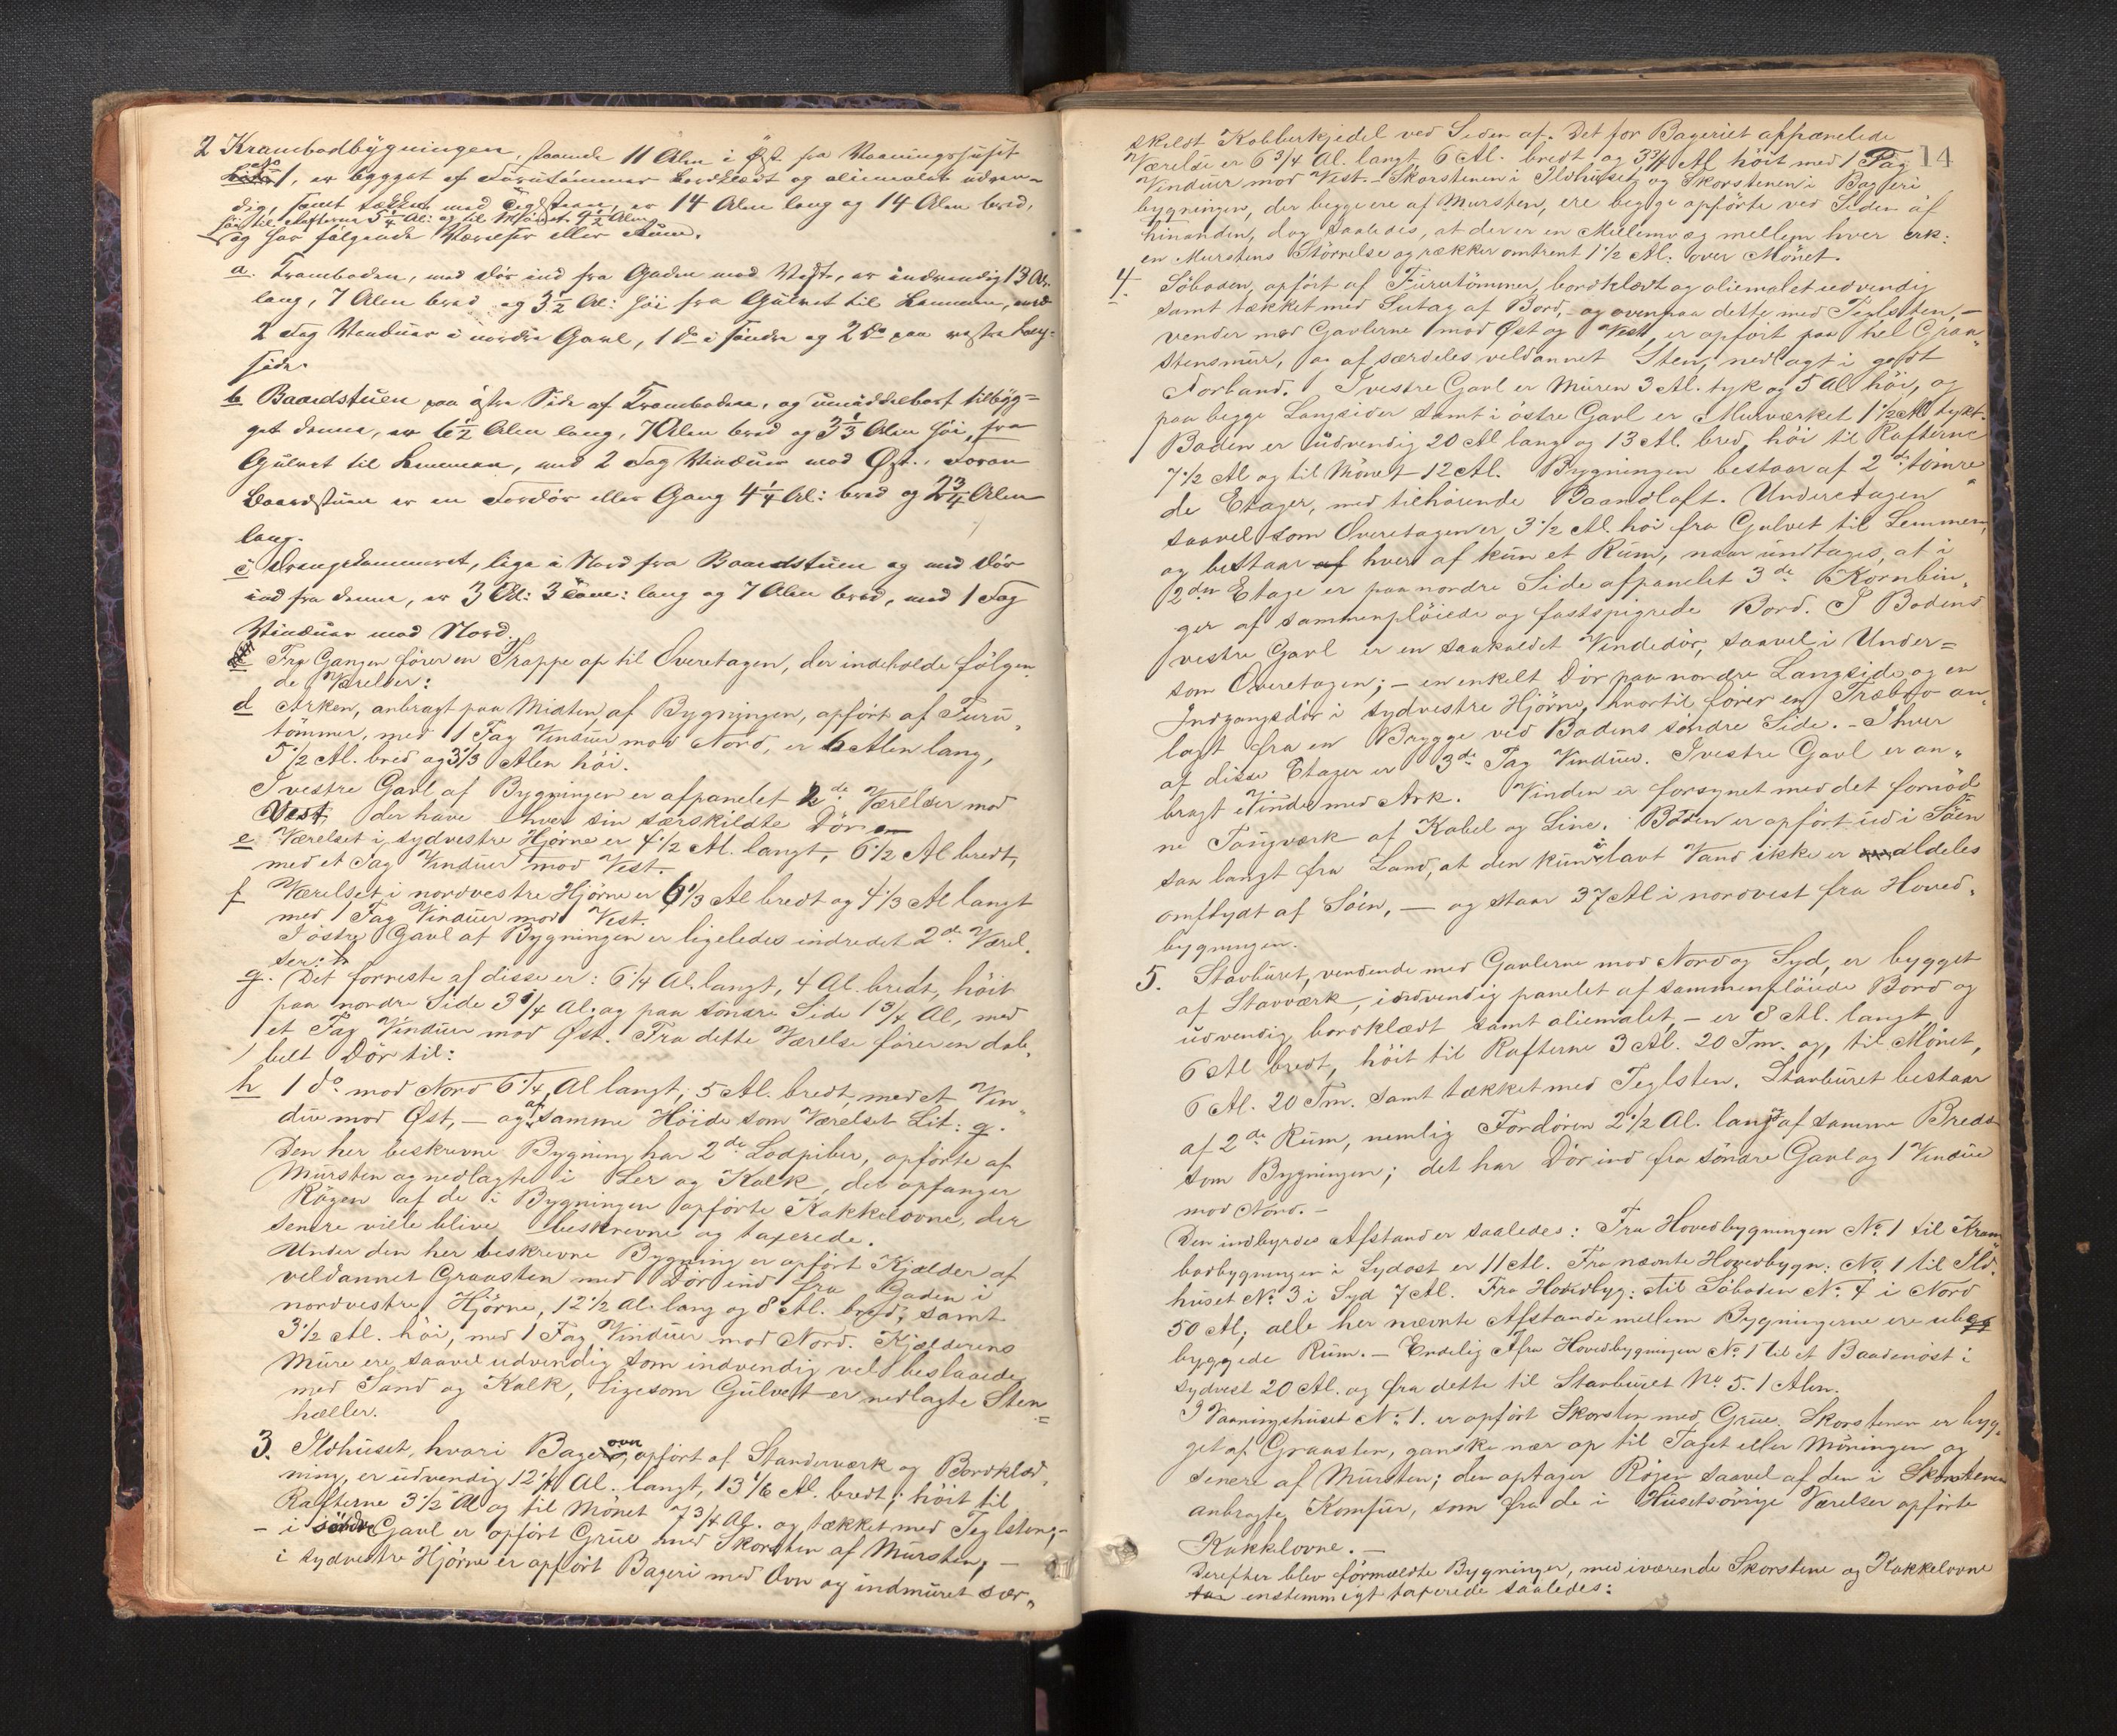 2 Krambodbygningen, staaende 11 Alen i Øst fra Vaaningshuset
No 1, er bygget af Furutømmer bordklædt og oliemalet udven-
dig, samt tækket med Teglsteen, er 14 Alen lang og 14 Alen bred,
høi til Rafterne 5 1/4 Al: og til Mønet 9 1/2 Alen
og har følgende Værelser eller Rum.
a. Kramboden, med Dör ind fra Gaden mod Vest, er indvendig 13 Al.
lang, 7 Alen bred og 3 1/2 Al: høi fra Gulvet til Lemmen, med
2 Fag Vinduer i nordre Gavl, 1 do i söndre og 2 do paa vestre Lang-
side.
b Baandstuen paa østre Side af Kramboden, og umiddelbart tilbyg=
get denne, er 6 1/2 Alen lang, 7 Alen bred og 3 1/3 Alen høi, fra
Gulvet til Lemmen, med 2 Fag Vinduer mod Øst. Foran
Baandstuen er en Fordör eller Gang 4 1/4 Al: bred og 2 3/4 Alen
lang.
c Drengekammeret, lige i Nord fra Baandstuen og med Dör
ind fra denne, er 3 Al: 3 Tom: lang og 7 Alen bred, med 1 Fag
Vinduer mod Nord.
Fra Gangen förer en Trappe op til Overetagen, der indeholde fölgen„
de Værelser:
d Arken, anbragt paa Midten af Bygningen, opfört af Furu„
tömmer, med 1 Fag Vinduer mod Nord, er 6 Alen lang,
5 1/2 Al. bred og 3 1/3 Alen höi.
I vestre Gavl af Bygningen er afpanelet 2de Værelser mod
Vest, der have hver sin særskildte Dör
e Værelset i sydvestre Hjörne er 4 1/2 Al. langt, 6 1/2 Al bredt,
med et Fag Vinduer mod Vest.
f Værelset i nordvestre Hjörne er 6 1/3 Al bredt og 4 1/3 Al langt
med 1 Fag Vinduer mod Vest.
I östre Gavl af Bygningen er ligeledes indredet 2de Værel„
ser:
g. Det forreste af disse er: 6 1/4 Al. langt, 4 Al. bredt, höit
paa nordre Side 3 1/4 Al. og paa söndre Side 1 3/4 Al, med
et Fag Vinduer mod Øst. Fra dette Værelse förer en dob„
belt Dör til:
h 1 do mod Nord 6 1/4 Al langt, 5 Al. bredt, med et Vin„
due mod Øst, — og af samme Höide som Værelset Lit: g.
Den her beskrevne Bygning har 2de Lodpiber, opförte af
Mursten og nedlagte i Ler og Kalk, der opfanger
Rögen af de i Bygningen opförte Kakkelovne, der
senere ville blive beskrevne og taxerede.
Under den her beskrevne Bygning er opfört Kjælder af
veldannet Graasten med Dör ind fra Gaden i
nordvestre Hjörne, 12 1/2 Al. lang og 8 Al. bred, samt
3 1/2 Al. höi, med 1 Fag Vinduer mod Nord. Kjælderens
Mure ere saavel udvendig som indvendig vel beslaaede
med Sand og Kalk, ligesom Gulvet er nedlagte Sten=
heller.
3. Ildhuset, hvori Bagerovn, opfört af Standerværk og Bordklæd„
ning, er udvendig 12 1/4 Al. langt, 13 1/6 Al. bredt; höit til
Rafterne 3 1/2 Al og til Mönet 7 3/4 Al. og tækket med Teglsten, —
i söndre Gavl er opfört Grue med Skorsten af Mursten, —
i sydvestre Hjörne er opfört Bageri med Ovn og indmuret sær„
14
skildt Kobberkjedel ved Siden af. Det for Bageriet afpanelede
Værelse er 6 3/4 Al. langt 6 Al. bredt og 3 3/4 Al. höit med 1 Fag
Vinduer mod Vest. — Skorstenen i Ildhuset og Skorstenen i Bageri
bygningen, der begge ere af Mursten, ere begge opförte ved Siden af
hinanden, dog saaledes, at der er en Mellemvæg mellem hver cirk:
en Murstens Störrelse og rækker omtrent 1 1/2 Al: over Mönet.
4. Söboden, opfört af Furutömmer, bordklædt og oliemalet udvendig
samt tækket med Sutag af Bord, og ovenpaa dette med Teglsten, —
vender med Gavlerne mod Øst og Vest, er opfört paa hel Graa„
stensmur, af særdeles veldannet Sten, nedlagt i godt
Forband. I vestre Gavl er Muren 3 Al. tyk og 5 Al höi, og
paa begge Langsider samt i östre Gavl er Murværket 1 1/2 Al tykt.
Boden er udvendig 20 Al lang og 13 Al. bred, höi til Rafterne
7 1/2 Al og til Mönet 12 Al. Bygningen bestaar af 2de tömre„
de Etager, med tilhörende Baandloft. Underetagen
saavel som Overetagen er 3 1/2 Al. höi fra Gulvet til Lemmen,
og bestaar hver af kun et Rum, naar undtages, at i
2den Etage er paa nordre Side afpanelet 3de Kornbin„
ger af sammenplöiede og fastspigrede Bord. I Bodens
vestre Gavl er en saakaldet Vindedör, saavel i Under=
som Overetagen; — en enkelt Dör paa nordre Langside og en
Indgangsdör i sydvestre Hjörne, hvortil förer en Træbro an„
lagt fra en Brygge ved Bodens söndre Side. — I hver
af disse Etager er 3de Fag Vinduer. I vestre Gavl er an„
bragt Vinde med Ark. Vinden er forsynet med det fornöd„
ne Taugværk af Kabel og Line. Boden er opfört ud i Söen
saa langt fra Land, at den kun i lavt Vand ikke er aldeles
omflydt af Söen, — og staar 37 Al i nordvest fra Hoved„
bygningen.
5. Stavburet, vendende med Gavlerne mod Nord og Syd, er bygget
af Stavværk, indvendig panelet af sammenplöiede Bord og
udvendig bordklædt samt oliemalet, — er 8 Al. langt,
6 Al bredt, höit til Rafterne 3 Al. 20 Tm. og, til Mönet,
6 Al. 20 Tm. samt tækket med Teglsten. Stavburet bestaar
af 2de Rum, nemlig Fordören 2 1/2 Al. lang af samme Bredde
som Bygningen; det har Dör ind fra söndre Gavl og 1 Vindue
mod Nord. —
Den indbyrdes Afstand er saaledes: Fra Hovedbygningen No 1 til Kram„
bodbygningen i Sydost er 11 Al. Fra nævnte Hovedbygn: No 1 til Ild„
huset No 3 i Syd 7 Al. Fra Hovedbyg: til Söboden No 4 i Nord
50 Al; alle her nævnte Afstande mellem Bygningerne ere ube
byggede Rum. — Endelig fra Hovedbygningen No 1 til et Baadenöst i
sydvest 20 Al. og fra dette til Stavburet No 5. 1 Alen.
I Vaaningshuset No 1. er opfört Skorsten med Grue. Skorstenen er byg„
get af Graasten, ganske nær op til Taget eller Möningen og
senere af Mursten; den optager Rögen saavel af den i Skorstenen
anbragte Komfur, som fra de i Husets övrige Værelser opförte
Kakkelovne. —
Derefter blev formældte Bygninger, med iværende Skorstene og Kakkelovne
enstemmigt taxerede saaledes: